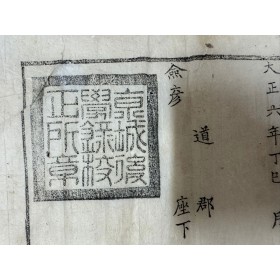 大正六年丁巳 月
道 郡 座下
僉彦
京城後
學錄校
正所章